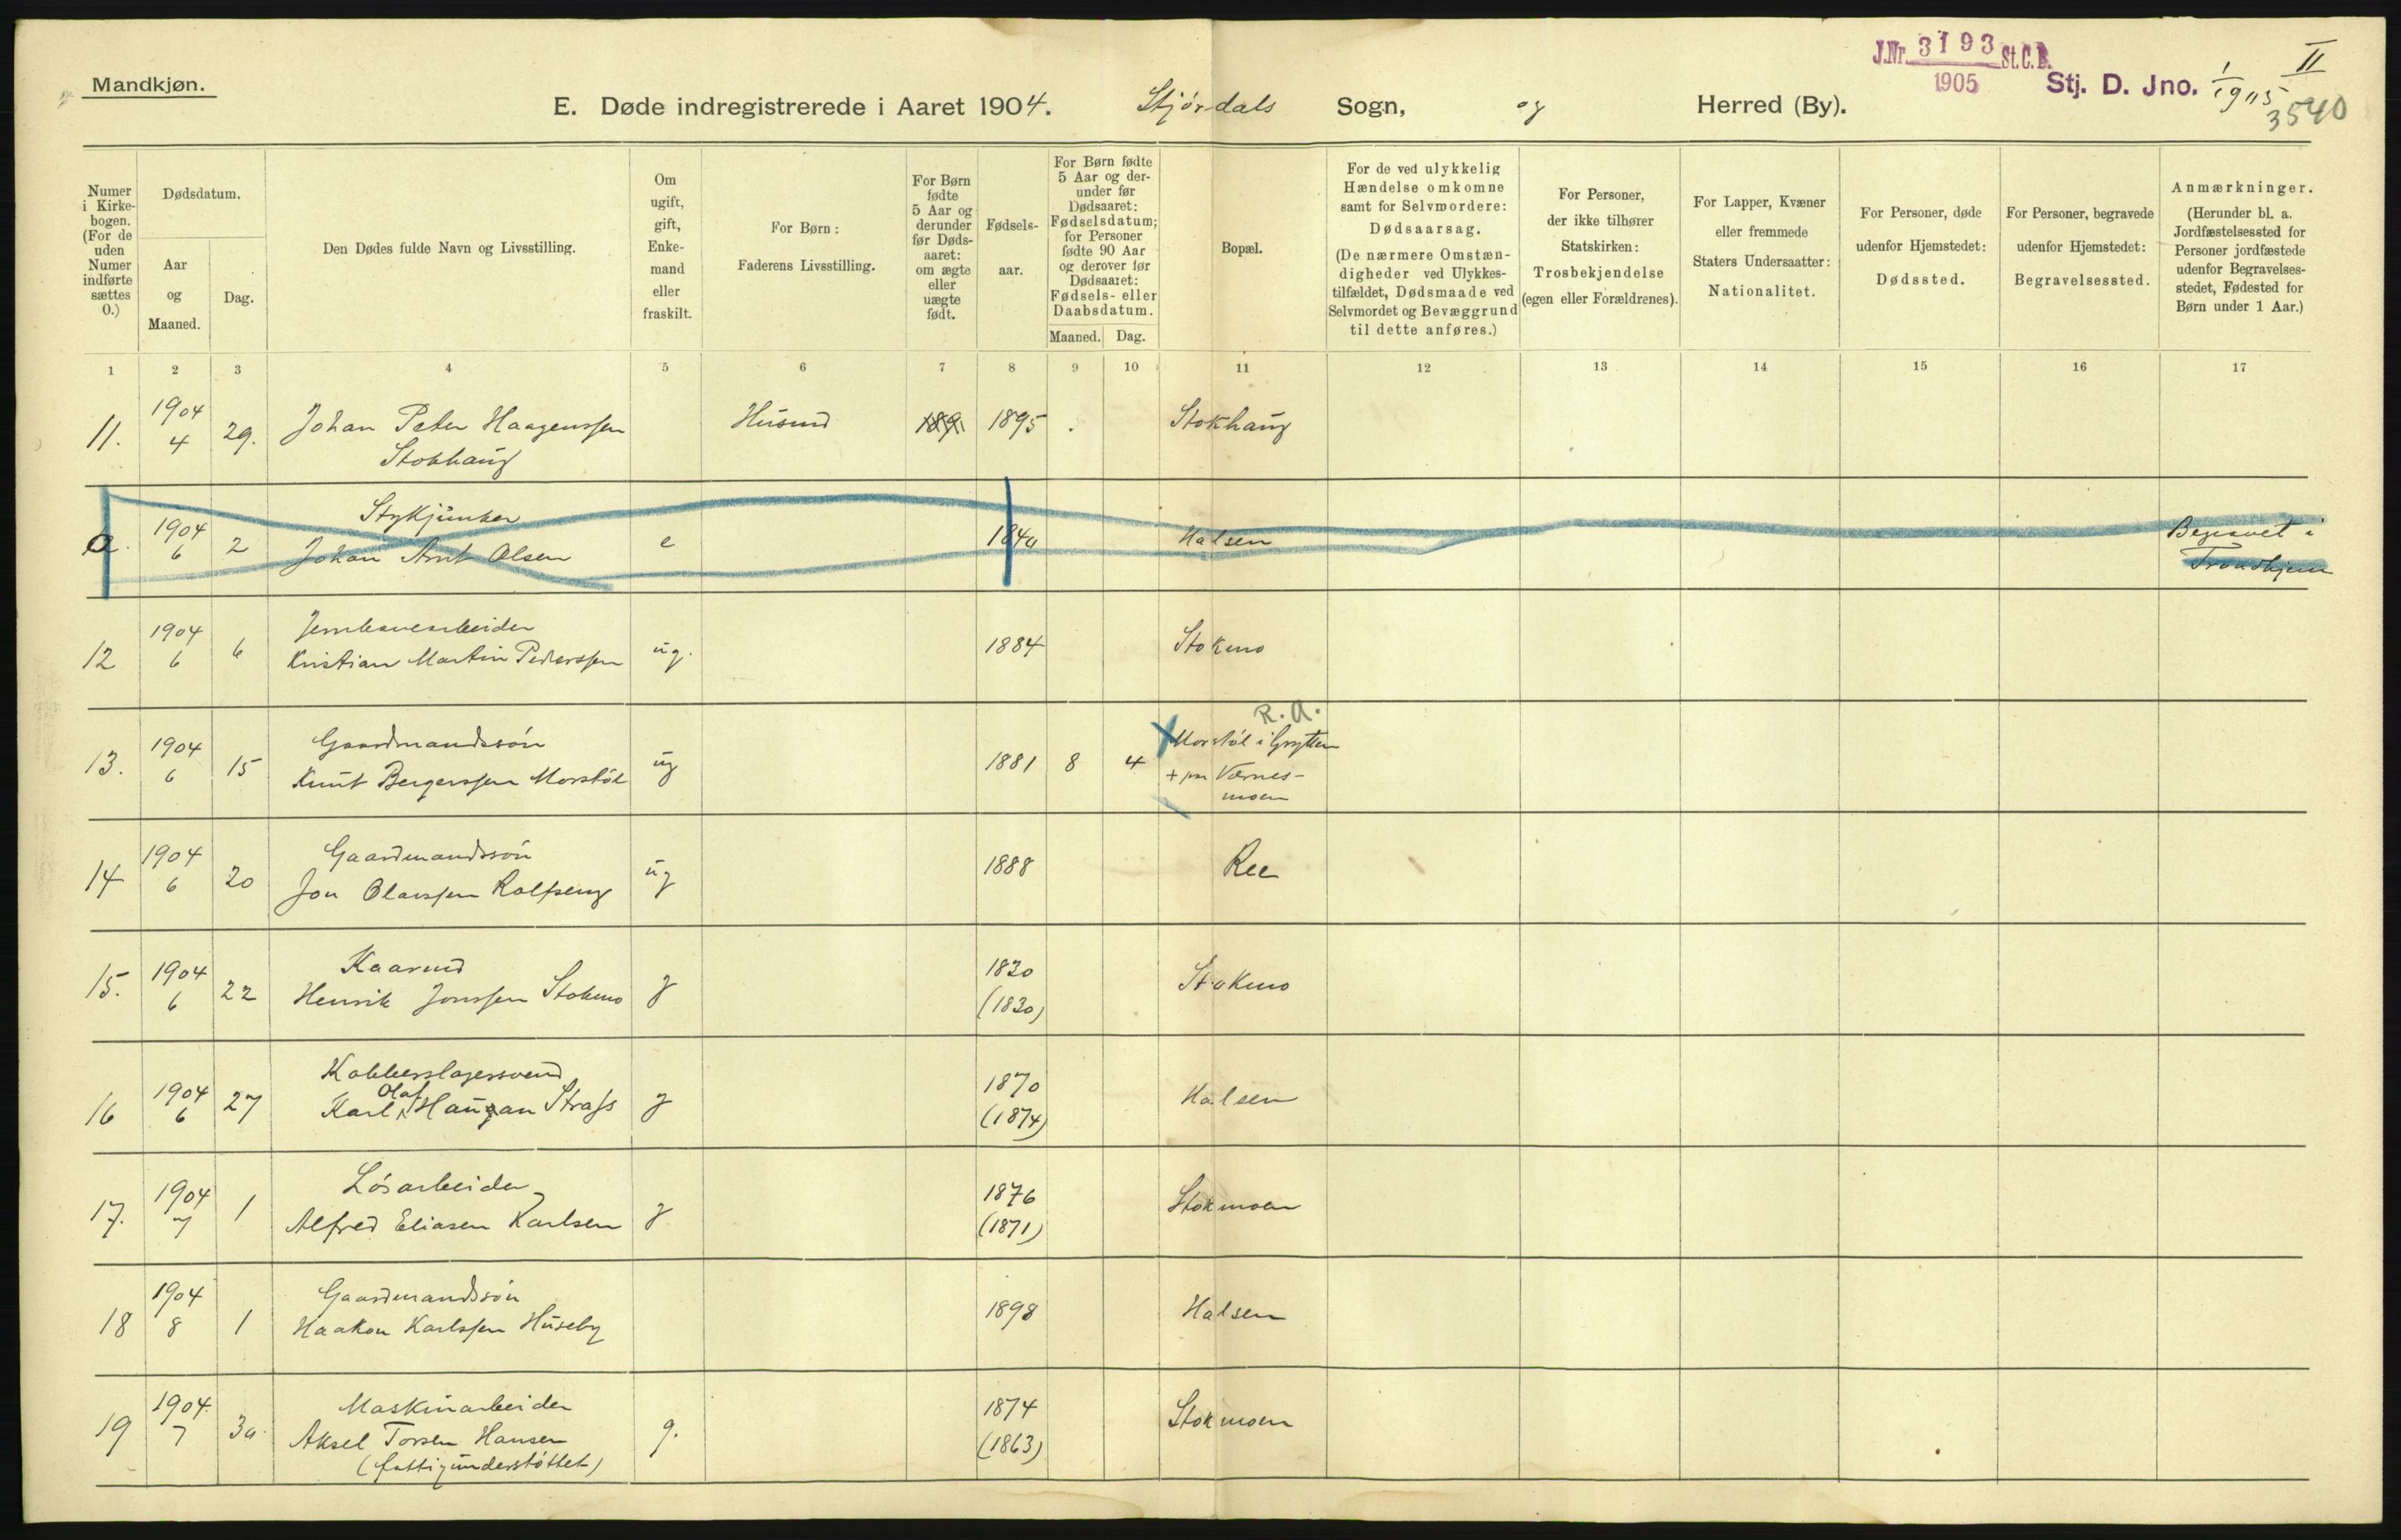 Mandkjøn.
J.Nr. 3193 St. C. B.
1905
Stj. D. Jno.
II
3540
E. Døde indregistrerede i Aaret 1904. Stjørdals Sogn, og Herred (By).
Numer i Kirke-bogen. (For de uden Numer indførte sættes 0.)
Dødsdatum.
Aar og Maaned.
Dag.
Den Dødes fulde Navn og Livsstilling.
Om ugift, gift, Enke-mand eller fraskilt.
For Børn: Faderens Livsstilling.
For Børn fødte 5 Aar og derunder før Døds-aaret: om ægte eller uægte født.
Fødsels-aar.
For Børn fødte 5 Aar og der-under før Dødsaaret: Fødselsdatum; for Personer fødte 90 Aar og derover før Dødsaaret: Fødsels- eller Daabsdatum.
Maaned. Dag.
Bopæl.
For de ved ulykkelig Hændelse omkomne samt for Selvmordere: Dødsaarsag. (De nærmere Omstæn-digheder ved Ulykkes-tilfældet, Dødsmaade ved Selvmordet og Bevæggrund til dette anføres.)
For Personer, der ikke tilhører Statskirken: Trosbekjendelse (egen eller Forældrenes).
For Lapper, Kvæner eller fremmede Staters Undersaatter: Nationalitet.
For Personer, døde udenfor Hjemstedet: Dødssted.
For Personer, begravede udenfor Hjemstedet: Begravelsessted.
Anmærkninger. (Herunder bl. a. Jordfæstelsessted for Personer jordfæstede udenfor Begravelses-stedet, Fødested for Børn under 1 Aar.)
1 2 3 4 5 6 7 8 9 10 11 12 13 14 15 16 17
11. 1904 4 29. Johan Peter Haagenssen Husmd 1895 Stokhaug
Stokhaug
Stykjunker
0. 1904 6 2 Johan Arnt Olsen e 1840 Halsen Begravet i
Trondhjem
Jernbanearbeider
12 1904 6 6 Kristian Martin Pederssen ug. 1884 Stokmo
R. A.
Gaardmandssøn
13. 1904 6 15 Knut Bergerssen Morstøl ug 1881 8 4 Morstøl i Grytten
+ paa Værnes-
moen
Gaardmandssøn
14 1904 6 20 Jon Olaussen Rolfseng ug 1888 Ree
Kaarmd
15. 1904 6 22 Henrik Jonssen Stokmo g 1830 Stokmo
(1830)
Kobberslagersvend
Olaf
16 1904 6 27 Karl Haugan Strass g 1870 Halsen
(1874)
Løsarbeider
17. 1904 7 1 Alfred Eliasen Karlsen g 1876 Stokmoen
(1871)
Gaardmandssøn
18 1904 8 1 Haakon Karlssen Huseby 1898 Halsen
Maskinarbeider
19 1904 7 30 Aksel Torsen Hansen g. 1874 Stokmoen
(fattigunderstøttet) (1863)